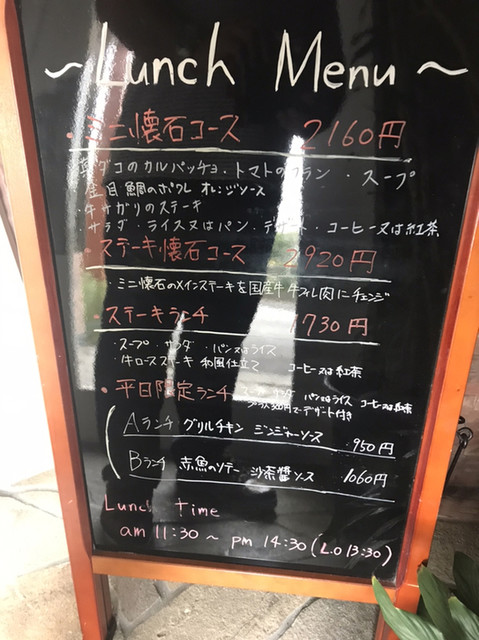 ～Lunch Menu～
・ミニ懐石コース 2160円
真ダコのカルパッチョ・トマトのフラン・スープ
金目鯛のポワレ オレンジソース
・牛サガリのステーキ
・サラダ・ライス又はパン・デザート・コーヒー又は紅茶
・ステーキ懐石コース 2920円
・ミニ懐石のメインステーキを国産牛牛フィレ肉にチェンジ
・ステーキランチ 1730円
・スープ・サラダ・パン又はライス
・牛ロースステーキ 和風仕立て コーヒー又は紅茶
・平日限定ランチ スープ サラダ パン又はライス コーヒー又は紅茶
プラス300円でデザート付き
Aランチ グリルチキン ジンジャーソース 950円
Bランチ 赤魚のソテー 沙茶醤ソース 1060円
Lunch time
am 11:30～ pm 14:30(L.O 13:30)